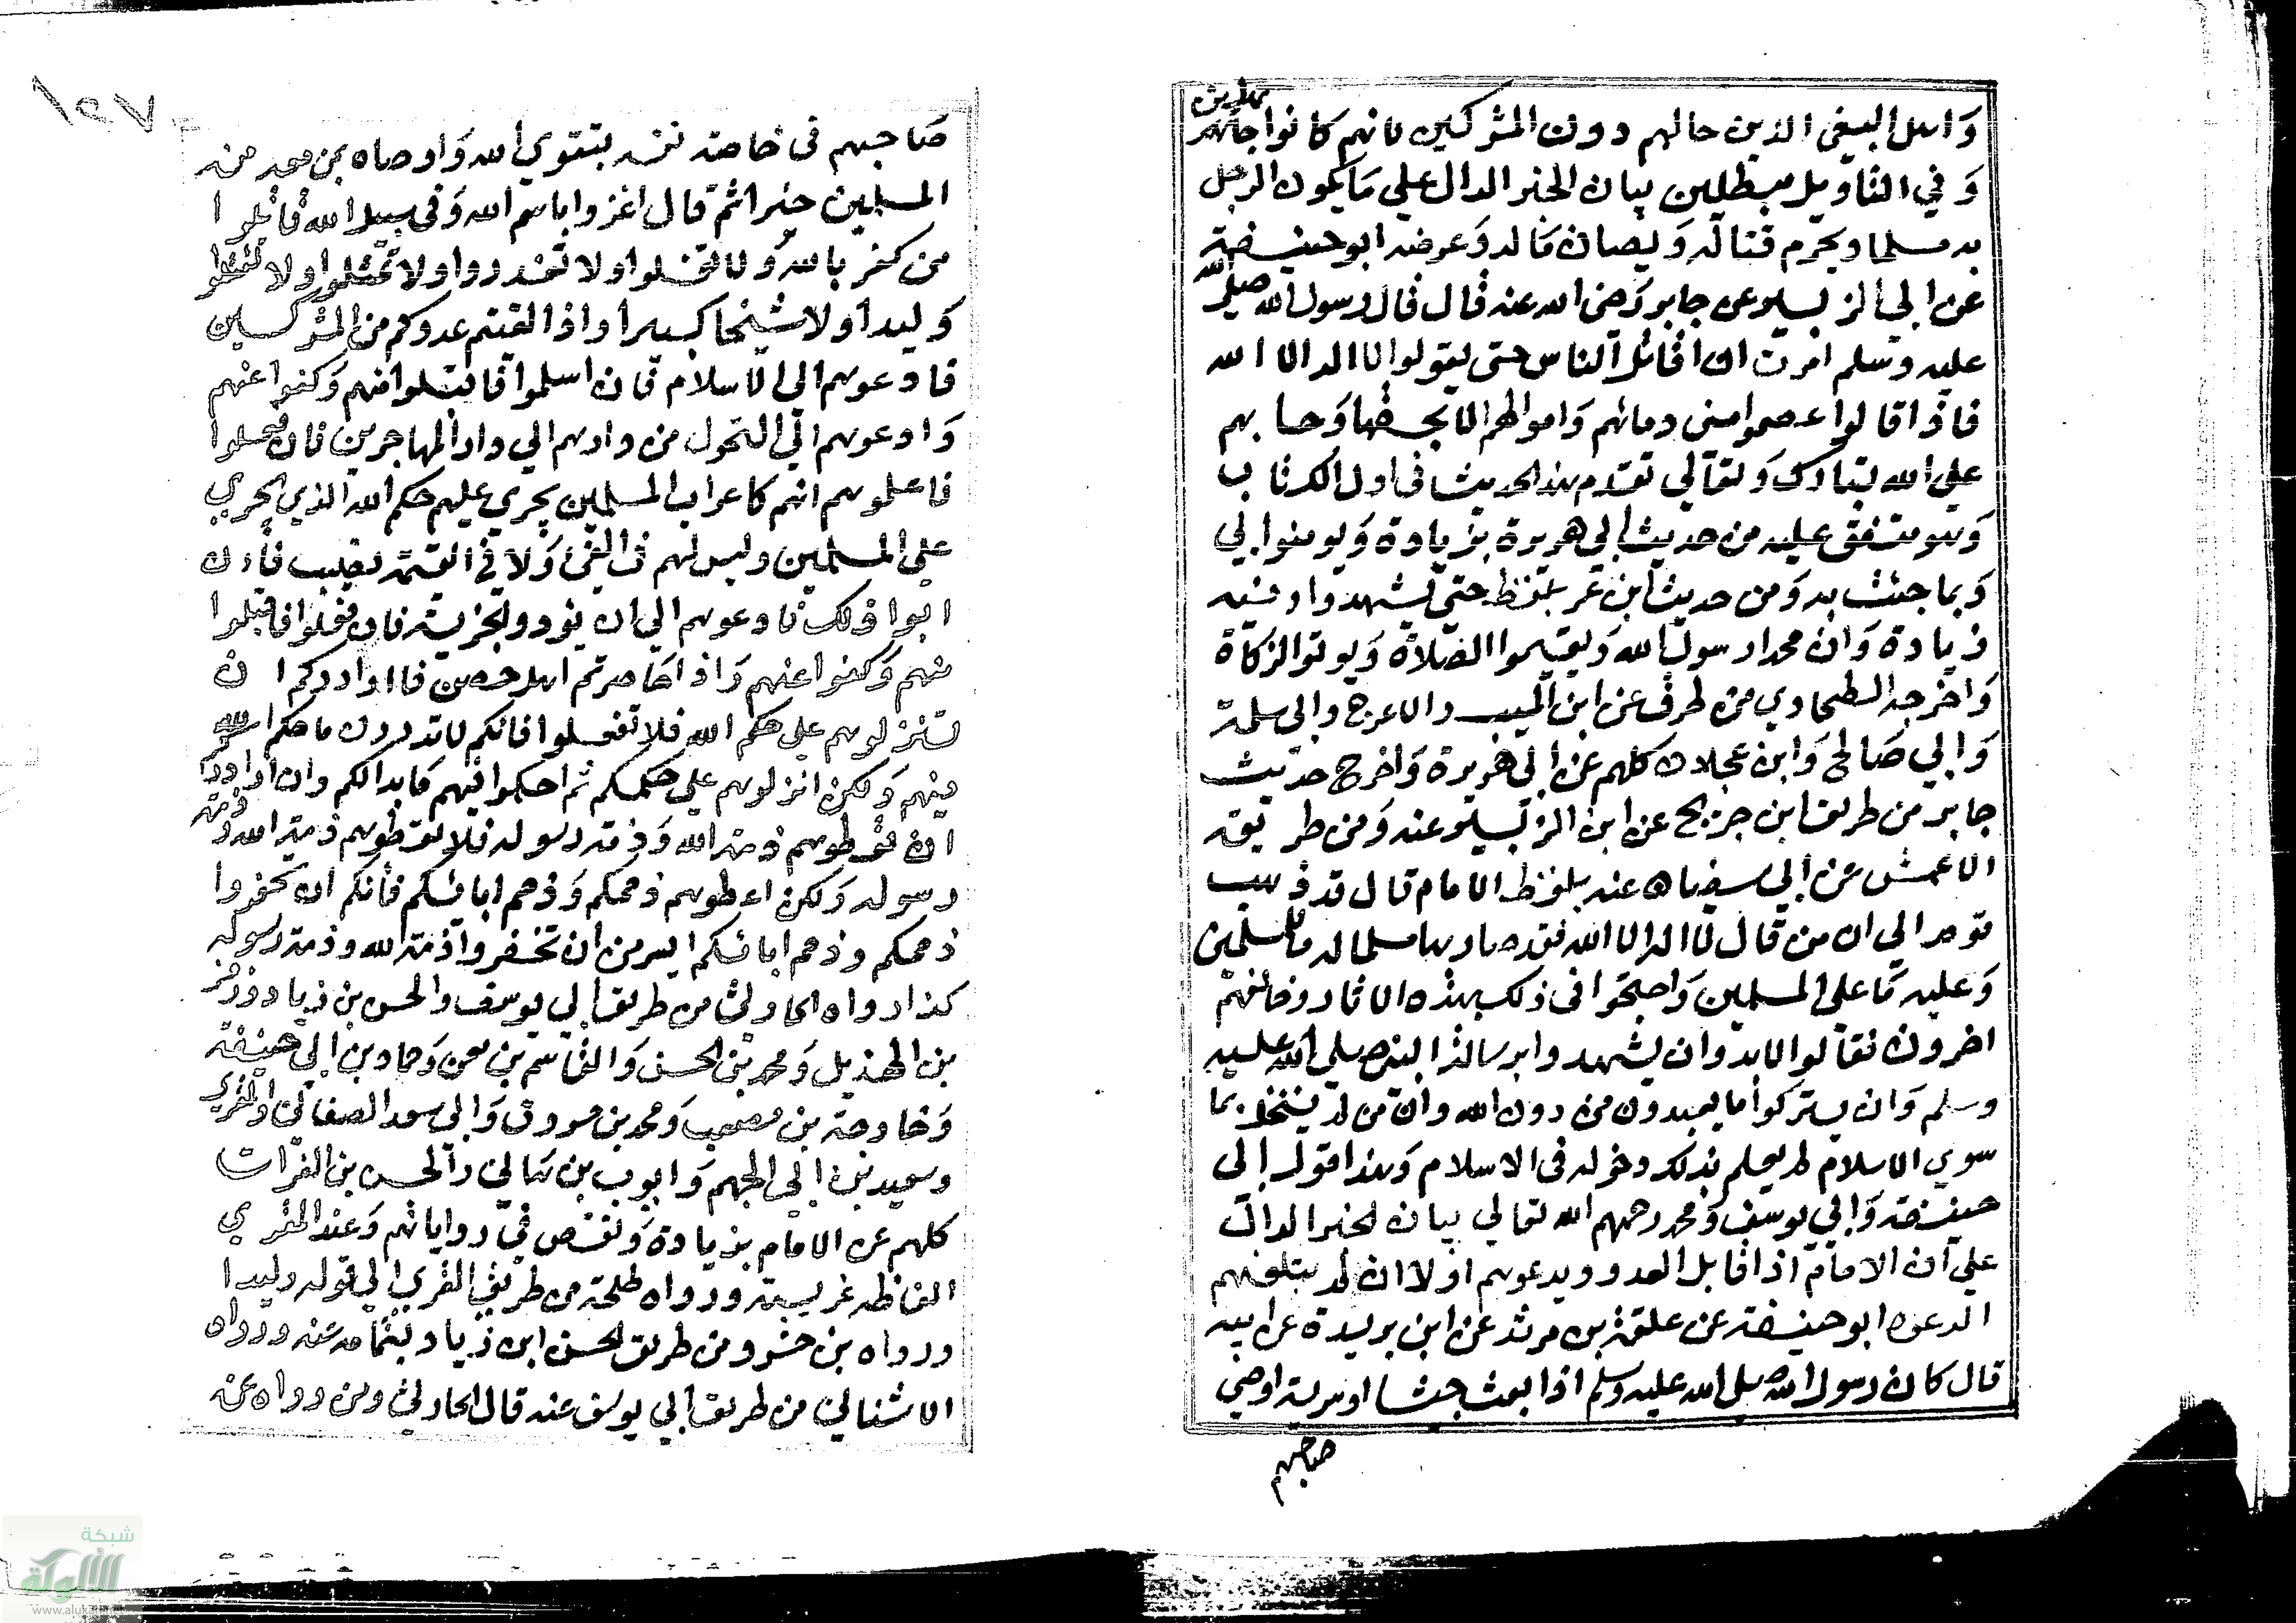 واهل البغي الذين حالهم دون المشركين لانهم كانوا جاهدين
وفي التاويل مبطلين بيان الخبر الدال علي ما يكون الرجل
به مسلما ويحرم قتاله ويصان ماله وعرضه ابو حنيفة
عن ابي الزبير عن جابر رضي الله عنه قال قال رسول الله صلي الله
عليه وسلم امرت ان اقاتل الناس حتي يقولوا لا اله الا الله
فاذا قالوا عصموا مني دمائهم واموالهم الا بحقها وحسابهم
علي الله تبارك وتعالي تقدم هذا الحديث في اول الكتاب
وهو متفق عليه من حديث ابي هريرة بزيادة ويومنوا بي
وبما جئت به ومن حديث ابن عمر بلفظ حتي يشهدوا وفيه
زيادة وان محمدا رسول الله ويقيموا الصلاة ويوتوا الزكاة
واخرجه الطحاوي من طرق عن ابن المسيب والاعرج وابي سلمة
وابي صالح وابن عجلان كلهم عن ابي هريرة واخرج حديث
جابر من طريق ابن جريج عن ابن الزبير عنه ومن طريق
الاعمش عن ابي سفيان عنه بلفظ الامام قال قد ذهب
قوم الي ان من قال لا اله الا الله فقد صار بها مسلما له ما للمسلمين
وعليه ما علي المسلمين واحتجوا في ذلك بهذه الاثار وخالفهم
اخرون فقالوا لابد وان يشهدوا برسالة النبي صلي الله عليه
وسلم وان يتركوا ما يعبدون من دون الله وان من لم يتخل بما
سوي الاسلام لم يعلم بذلك دخوله في الاسلام وهذا قول ابي
حنيفة وابي يوسف ومحمد رحمهم الله تعالي بيان الخبر الدال
علي ان الامام اذا قابل العدو ويدعوهم اولا ان لم يبلغهم
الدعوه ابو حنيفة عن علقمة بن مرثد عن ابن بريدة عن ابيه
قال كان رسول الله صلي الله عليه وسلم اذا بعث جيشا او سرية اوصي
صاحبهم
١٥٧
صاحبهم في خاصة نفسه بتقوي الله واوصاه بمن معه من
المسلمين خيرا ثم قال اغزوا باسم الله وفي سبيل الله قاتلوا
من كفر بالله ولا تغلوا ولا تغدروا ولا تمثلوا ولا تقتلوا
وليدا ولا شيخا كبيرا واذا لقيتم عدوكم من المشركين
فادعوهم الي الاسلام فان اسلموا فاقبلوا منهم وكفوا عنهم
وادعوهم الي التحول من دارهم الي دار المهاجرين فان فعلوا
فاعلموهم انهم كاعراب المسلمين يجري عليهم حكم الله الذي يجري
علي المسلمين وليس لهم في الفئ ولا في القسمة نصيب فان
ابوا ذلك فادعوهم الي ان يودوا الجزية فان فعلوا فاقبلوا
منهم وكفوا عنهم واذا حاصرتم اهل حصن فارادوكم ان
تنزلوهم علي حكم الله فلا تفعلوا فانكم لا تدرون ما حكم الله
فيهم ولكن انزلوهم علي حكمكم ثم احكموا فيهم ما بدا لكم وان ارادوكم
ان تعطوهم ذمة الله وذمة رسوله فلا تعطوهم ذمة الله وذمة
رسوله ولكن اعطوهم ذممكم وذمم ابائكم فانكم ان تخفروا
ذممكم وذمم ابائكم ايسر من ان تخفروا ذمة الله وذمة رسوله
كذا رواه الحارثي من طريق ابي يوسف والحسن بن زياد وزفر
بن الهذيل ومحمد بن الحسن والقاسم بن معن وحماد بن ابي حنيفة
وخارجة بن مصعب ومحمد بن مسروق وابي سعد الصغاني والمقري
وسعيد بن ابي الجهم وايوب بن هاني والحسن بن الفرات
كلهم عن الامام بزيادة ونقص في رواياتهم وعند المقري
الفاظه غريبة ورواه طلحة من طريق المقري الي قوله وليدا
ورواه بن خسرو من طريق الحسن ابن زياد بتمامه عنه ورواه
الاشناني من طريق ابي يوسف عنه قال الحارثي ومن رواه عن
شبكة
الألوكة
www.alukah.net